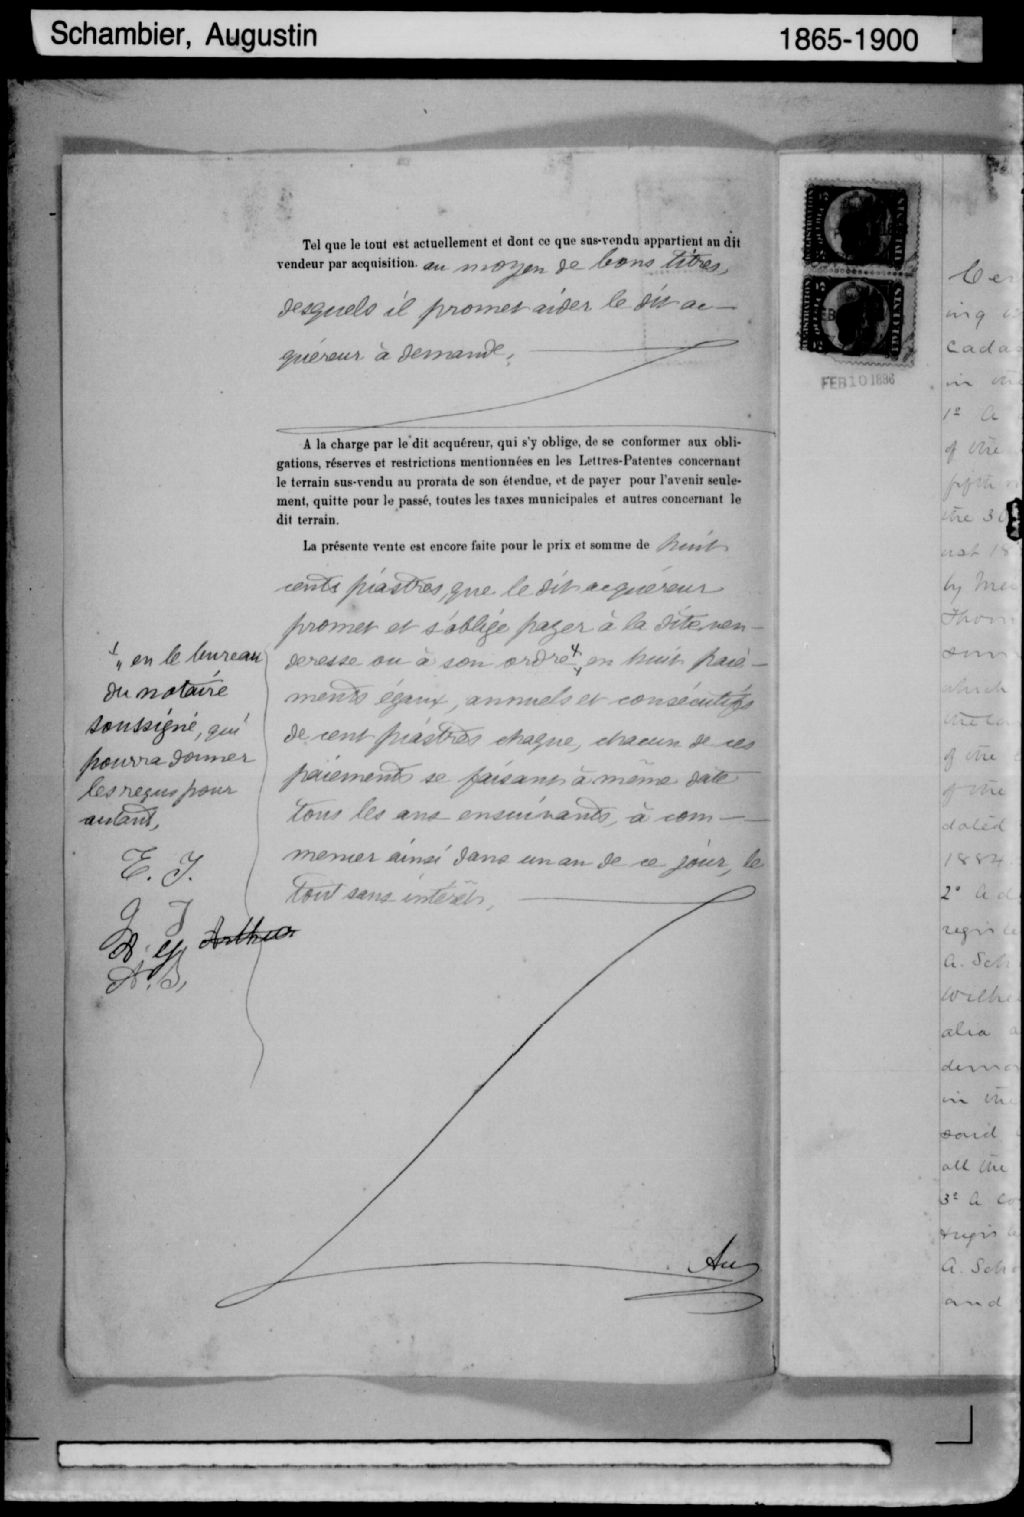 Schambier, Augustin
1865-1900
Tel que le tout est actuellement et dont ce que sus-vendu appartient au dit
vendeur par acquisition. au moyen de bons titres,
desquels il promet aider le dit ac-
quéreur à demande,
A la charge par le dit acquéreur, qui s'y oblige, de se conformer aux obli-
gations, réserves et restrictions mentionnées en les Lettres-Patentes concernant
le terrain sus-vendu au prorata de son étendue, et de payer pour l'avenir seule-
ment, quitte pour le passé, toutes les taxes municipales et autres concernant le
dit terrain.
La présente vente est encore faite pour le prix et somme de huit
cents piastres, que le dit acquéreur
promet et s'oblige payer à la dite ven-
deresse ou à son ordre en huit paie-
ments égaux, annuels et consécutifs
de cent piastres chaque, chacun de ces
paiements se faisant à même date
tous les ans ensuivants, à com-
mencer ainsi dans un an de ce jour, le
tout sans intérêt,
en le bureau
du notaire
soussigné, qui
pourra donner
les reçus pour
autant,
E. J.
Arthur
A. S,
Au
REGISTRATION
FIVE CENTS
FEB 10 1886
Cer
ing
Cadas
in the
1° A
of the
fifth
the 30
ust 18
by
Thom
of the
of the
dated
1884.
2° A d
regis
A. Sch
Wilhe
also a
in the
said
all the
3° A co
regis
A. Sch
and